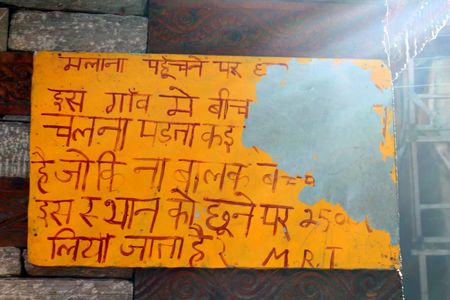 मलाना पहुँचने पर
इस गाँव मे बीच
चलना पड़ता कइ
है जोकि ना बालक
इस स्थान को छूने पर
लिया जाता है र M.R.T